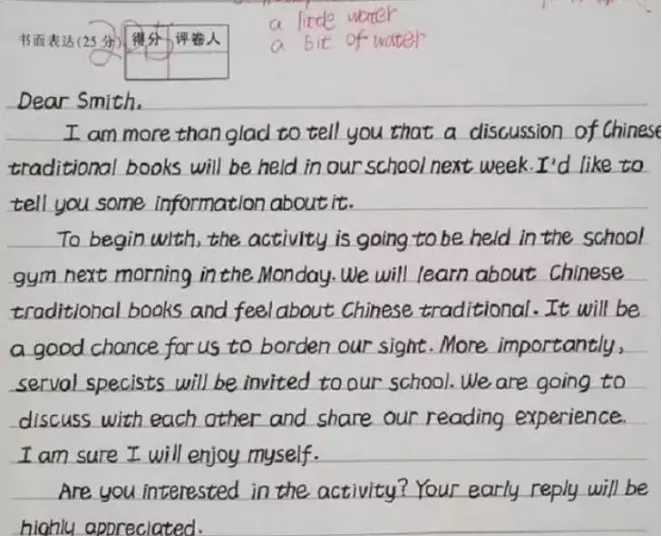 a little water
a bit of water
书面表达(25分) 得分 评卷人
Dear Smith,
I am more than glad to tell you that a discussion of Chinese
traditional books will be held in our school next week. I'd like to
tell you some information about it.
To begin with, the activity is going to be held in the school
gym next morning in the Monday. We will learn about Chinese
traditional books and feel about Chinese traditional. It will be
a good chance for us to borden our sight. More importantly,
serval specists will be invited to our school. We are going to
discuss with each other and share our reading experience.
I am sure I will enjoy myself.
Are you interested in the activity? Your early reply will be
highly appreciated.